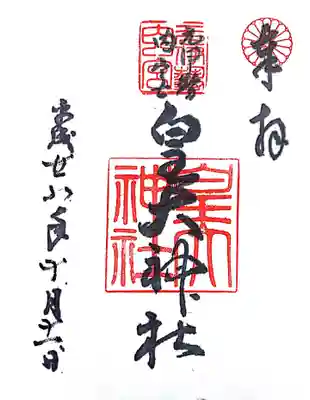 奉拝
元伊勢
内宮
皇大神社
皇大
神社
平成廿八年十月
日